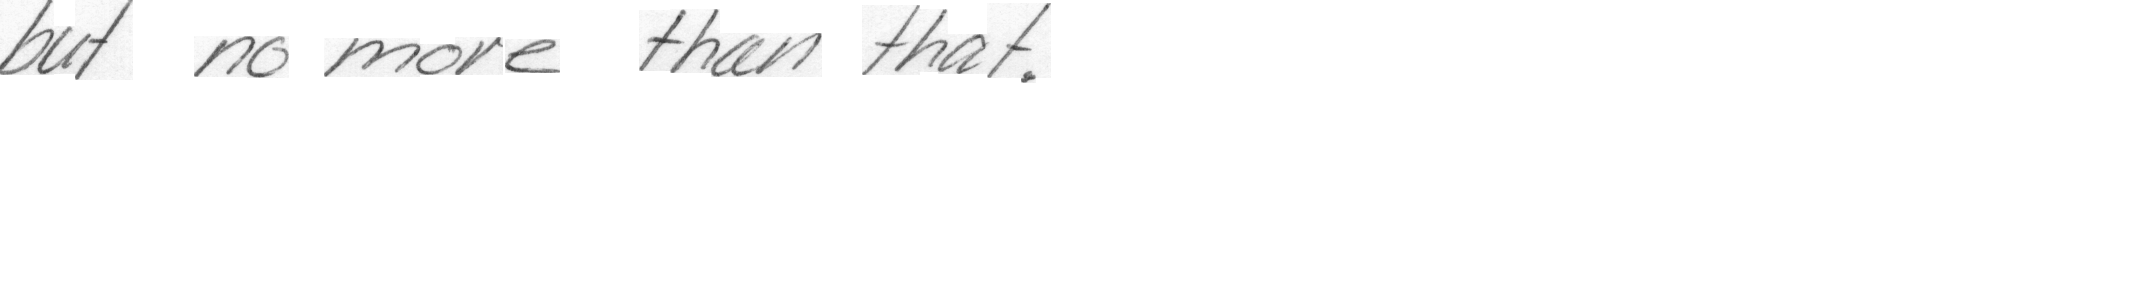 but no more than that.